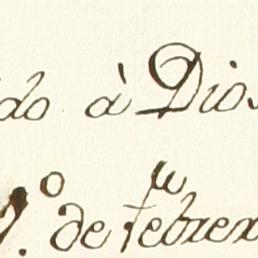 do à Dios
1.º de febrer